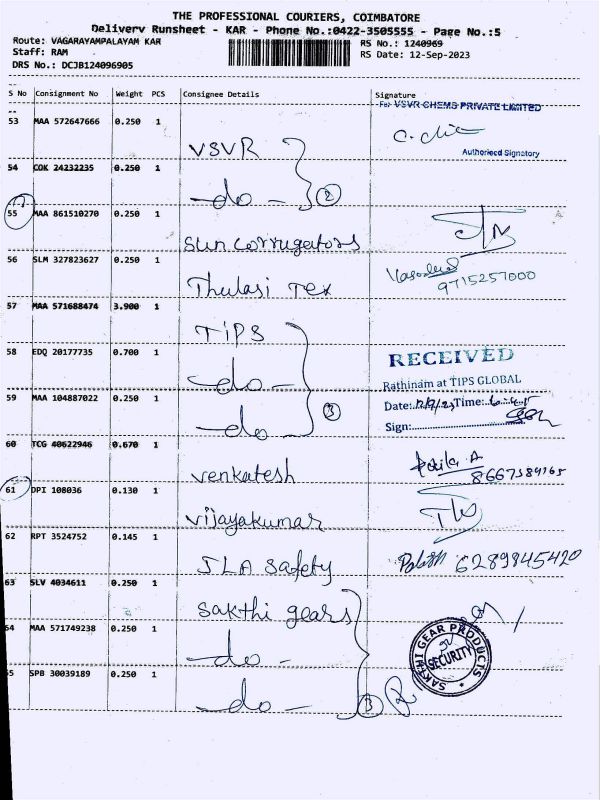 THE PROFESSIONAL COURIERS, COIMBATORE
Delivery Runsheet - KAR - Phone No.:0422-3505555 - Page No.:5
Route: VAGARAYAMPALAYAM KAR
RS No.: 1240969
Staff: RAM
RS Date: 12-Sep-2023
DRS No.: DCJB124096905
S No Consignment No Weight PCS Consignee Details Signature
For VSVR CHEMS PRIVATE LIMITED
53 MAA 572647666 0.250 1 VSVR
Authorised Signatory
54 COK 24232235 0.250 1 -do- 2
55 MAA 861510270 0.250 1 Sun Corrugators
56 SLM 327823627 0.250 1 Thulasi Tex
9715257000
57 MAA 571688474 3.900 1 TiPS
58 EDQ 20177735 0.700 1 -do-
RECEIVED
Rathinam at TIPS GLOBAL
59 MAA 104887022 0.250 1 -do- 3
Date: Time:
Sign:
60 TCG 40622946 0.670 1 Venkatesh
61 DPI 108036 0.130 1 Vijayakumar
62 RPT 3524752 0.145 1 JLA Safety
6289845420
63 SLV 4034611 0.250 1 Sakthi gears
64 MAA 571749238 0.250 1 -do-
SAKTHI GEAR PRODUCTS
SECURITY
5 SPB 30039189 0.250 1 -do- 3